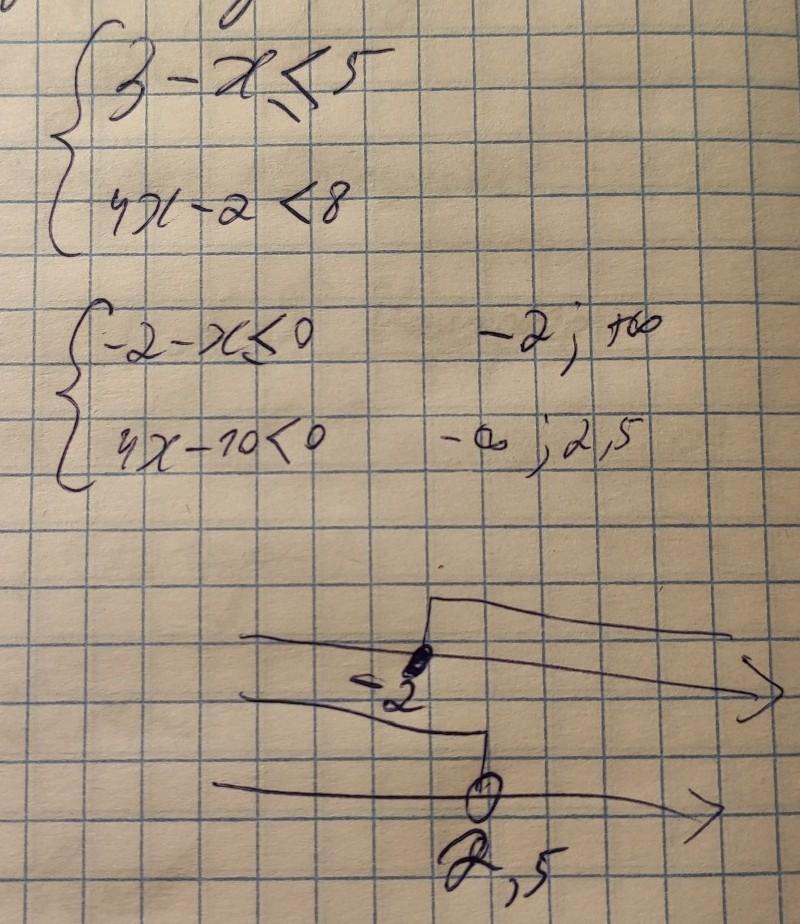 3 - x ≤ 5
4x - 2 < 8
-2 - x ≤ 0 -2 ; +∞
4x - 10 < 0 -∞ ; 2,5
-2
2,5